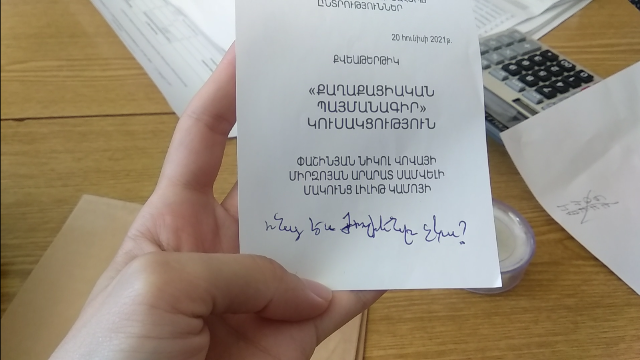 ԸՆՏՐՈՒԹՅՈՒՆՆԵՐ
20 հունիսի 2021թ.
ՔՎԵԱԹԵՐԹԻԿ
«ՔԱՂԱՔԱՑԻԱԿԱՆ
ՊԱՅՄԱՆԱԳԻՐ»
ԿՈՒՍԱԿՑՈՒԹՅՈՒՆ
ՓԱՇԻՆՅԱՆ ՆԻԿՈԼ ՎՈՎԱՅԻ
ՄԻՐԶՈՅԱՆ ԱՐԱՐԱՏ ՍԱՄՎԵԼԻ
ՄԱԿՈՒՆՑ ԼԻԼԻԹ ԿԱՄՈՅԻ